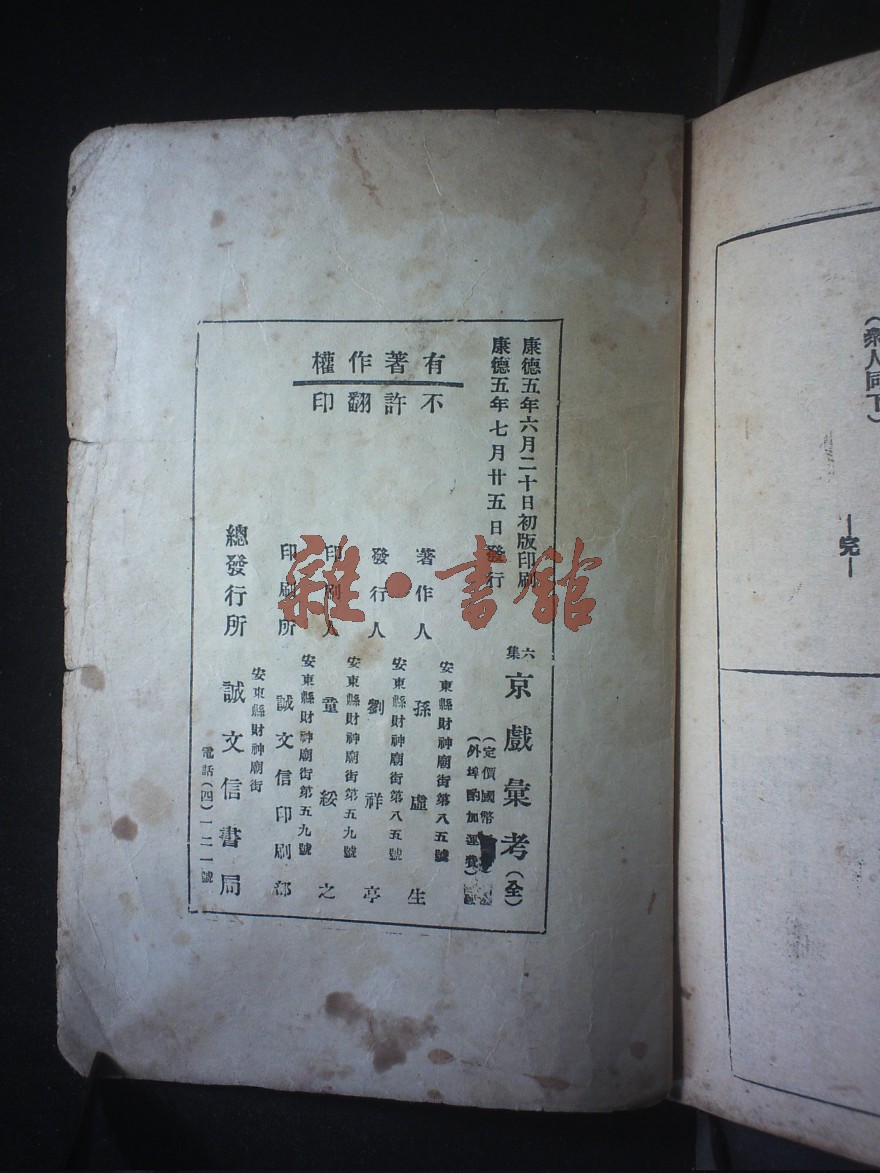 (衆人同下)
—完—
康德五年六月二十日初版印刷
康德五年七月廿五日發行
六集 京戲彙考(全)
(定價國幣
(外埠酌加運費)
安東縣財神廟街第八五號
著作人 孫虛生
安東縣財神廟街第八五號
發行人 劉祥亭
安東縣財神廟街第五九號
印刷人 童綏之
安東縣財神廟街第五九號
印刷所 誠文信印刷部
安東縣財神廟街
總發行所 誠文信書局
電話(四)一二一號
有著作權
不許翻印
雜·書館